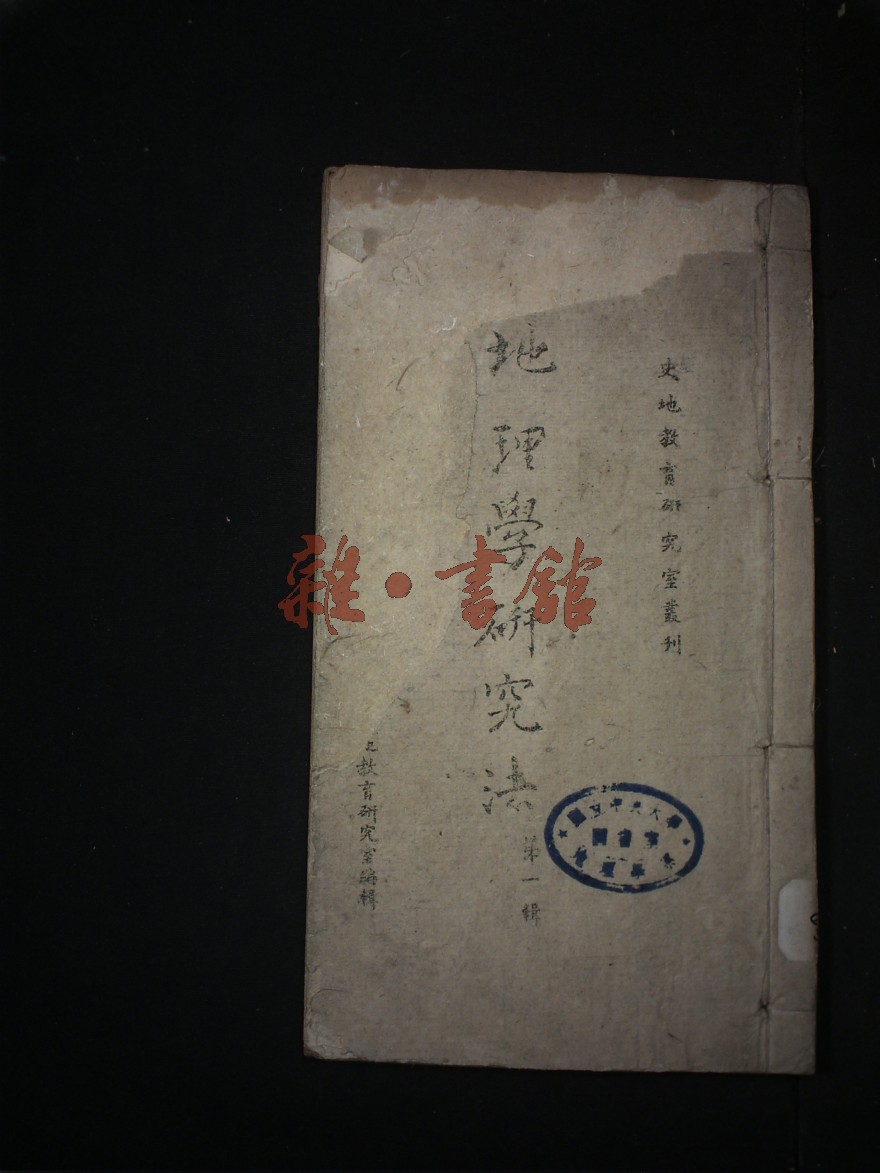 史地教育研究室叢刊
地理學研究法
第一輯
教育研究室編輯
雜·書館
國立中央大學
圖書室